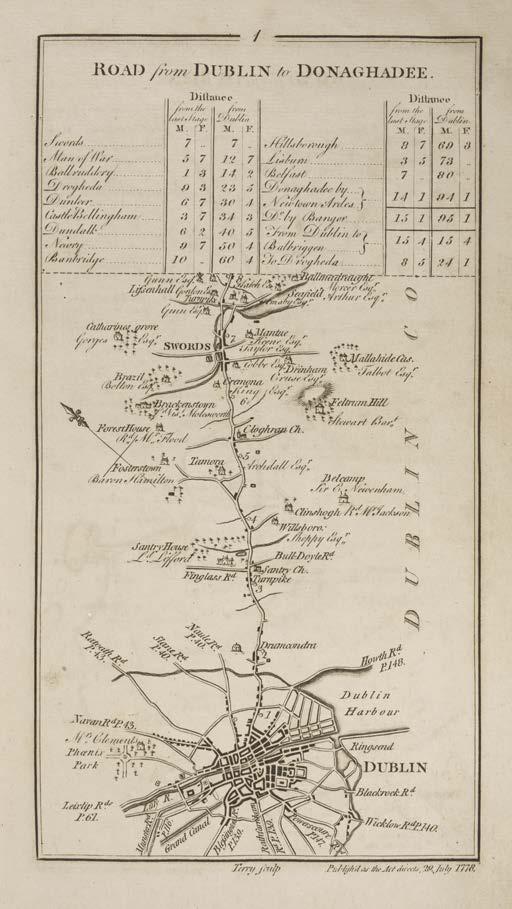 1
ROAD from DUBLIN to DONAGHADEE.
Distance Distance
from the last Stage from Dublin from the last Stage from Dublin
M. F. M. F. M. F. M. F.
Swords 7 .. 7 .. Hillsborough 8 7 69 3
Man of War 5 7 12 7 Lisburn 3 5 73
Balruddery 1 3 14 2 Belfast 7 .. 80 ..
Drogheda 9 3 23 5 Donaghadee by
Dunleer 6 7 30 4 Newtown Ardes 14 1 94 1
Castle Bellingham 3 7 34 3 Do. by Bangor 15 1 95 1
Dundalk 6 2 40 5 From Dublin to
Newry 9 7 50 4 Balbriggen 15 4 15 4
Banbridge 10 .. 60 4 To Drogheda 8 5 24 1
Gunn Esqr.
Hatch Esqr.
Ballmadraught
Mercer Esqr.
Lissenhall Gordon Esqr.
Seafield,
Arthur Esqr.
Turnpike
Gunn Esqr.
Catharines grove
Georges Esqr.
Mantue
Keone Esqr.
Taylor Esqr.
SWORDS
7
Mallahide Cas.
Talbot Esqr.
Gobbe Esqr.
Drinham
Cruse Esqr.
Brazil
Bolton Esqr.
Cremona
King Esqr.
6
Brackenstown
Vis. Molesworth
Feltrum Hill
Stewart Bart.
Forest House
Rd. Mr. Flood
Cloghran Ch.
5
Fosterstown
Baron Hamilton
Tamora
Archdall Esqr.
Belcamp
Sir E. Newenham
Clinshogh Rd. Mr. Jackson
4
Willsboro:
Shoppy Esqr.
Santry House
Ld. Lifford
Bull-Doyle Rd.
Finglass Rd.
Santry Ch.
Turnpike
3
DUBLIN CO
Ratoath Rd. P.43.
Slane Rd. P.40.
Naule Rd. P.40.
Drumcondra
2
Howth Rd. P.148.
Dublin
Harbour
1
Navan Rd. P.43.
Mr. Clements
Phœnix
Park
Ringsend
DUBLIN
Leixlip Rd.
P.61.
Liffy R.
Blackrock Rd.
Wicklow Rd. P.140.
Grand Canal
Terry sculp
Publish'd as the Act directs, 29, July 1778.